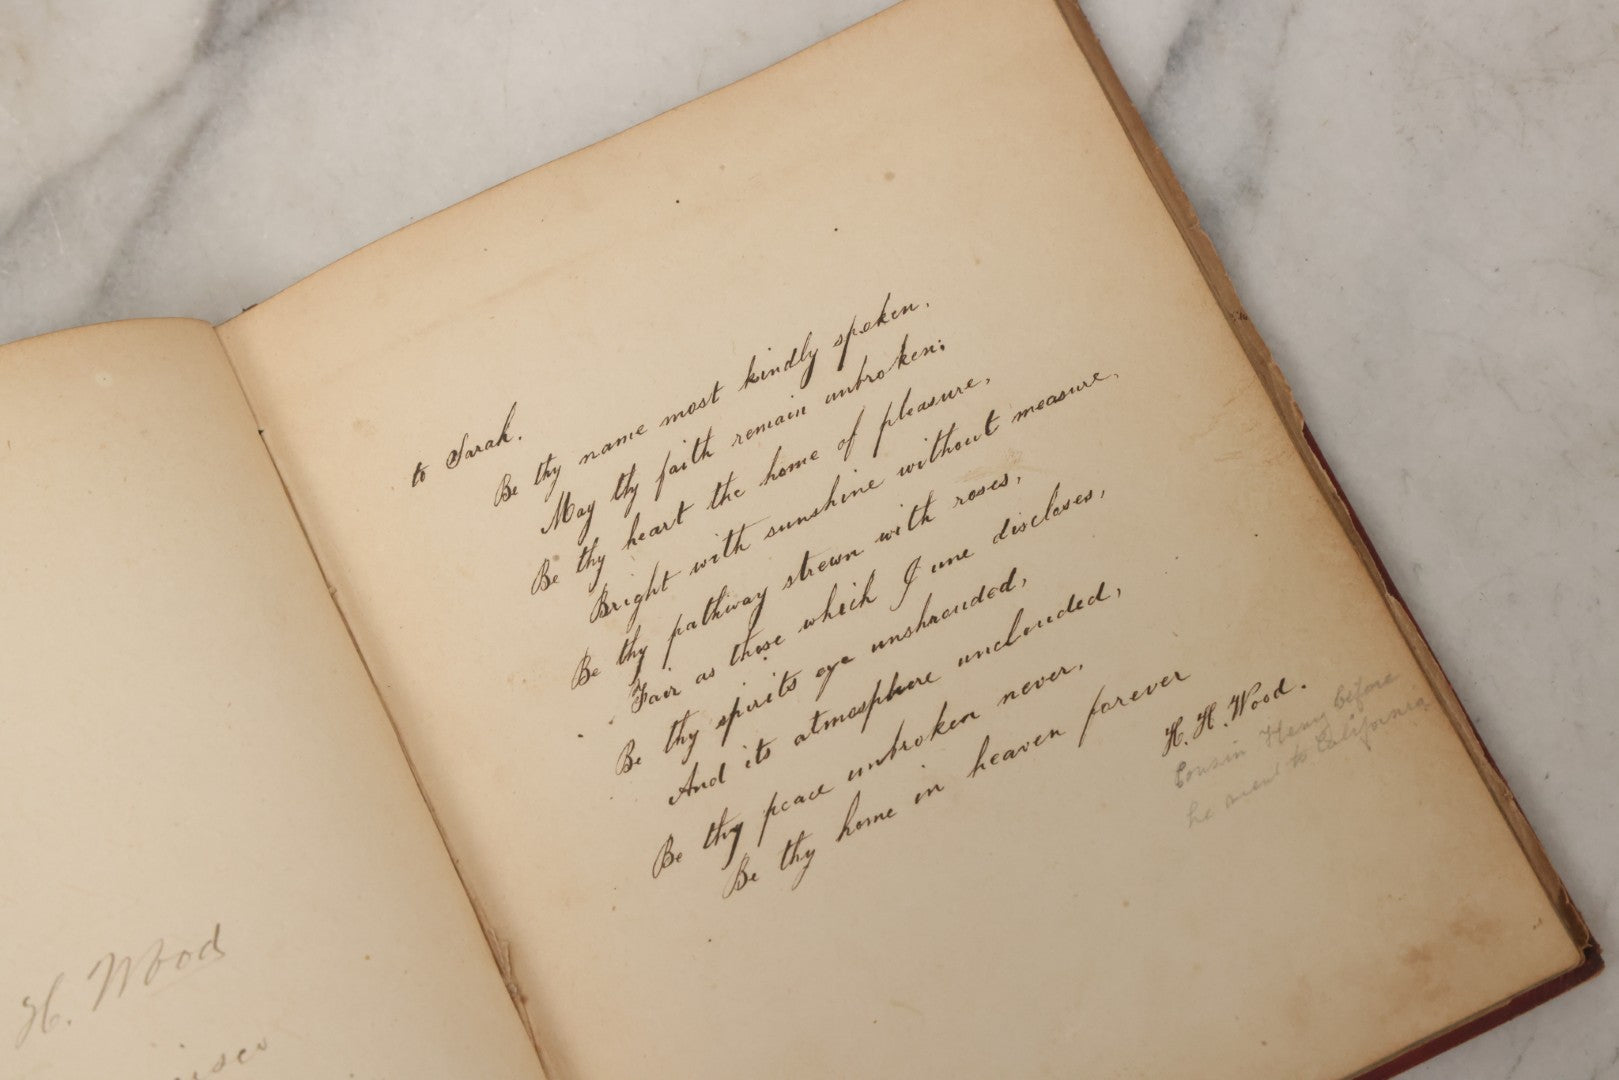 H. Wood
to Sarah.
Be thy name most kindly spoken.
May thy faith remain unbroken;
Be thy heart the home of pleasure,
Bright with sunshine without measure,
Be thy pathway strewn with roses,
Fair as those which June discloses,
Be thy spirits eye unshrouded,
And its atmosphere unclouded,
Be thy peace unbroken never.
Be thy home in heaven forever
H. H. Wood.
Cousin Henry before
he went to California